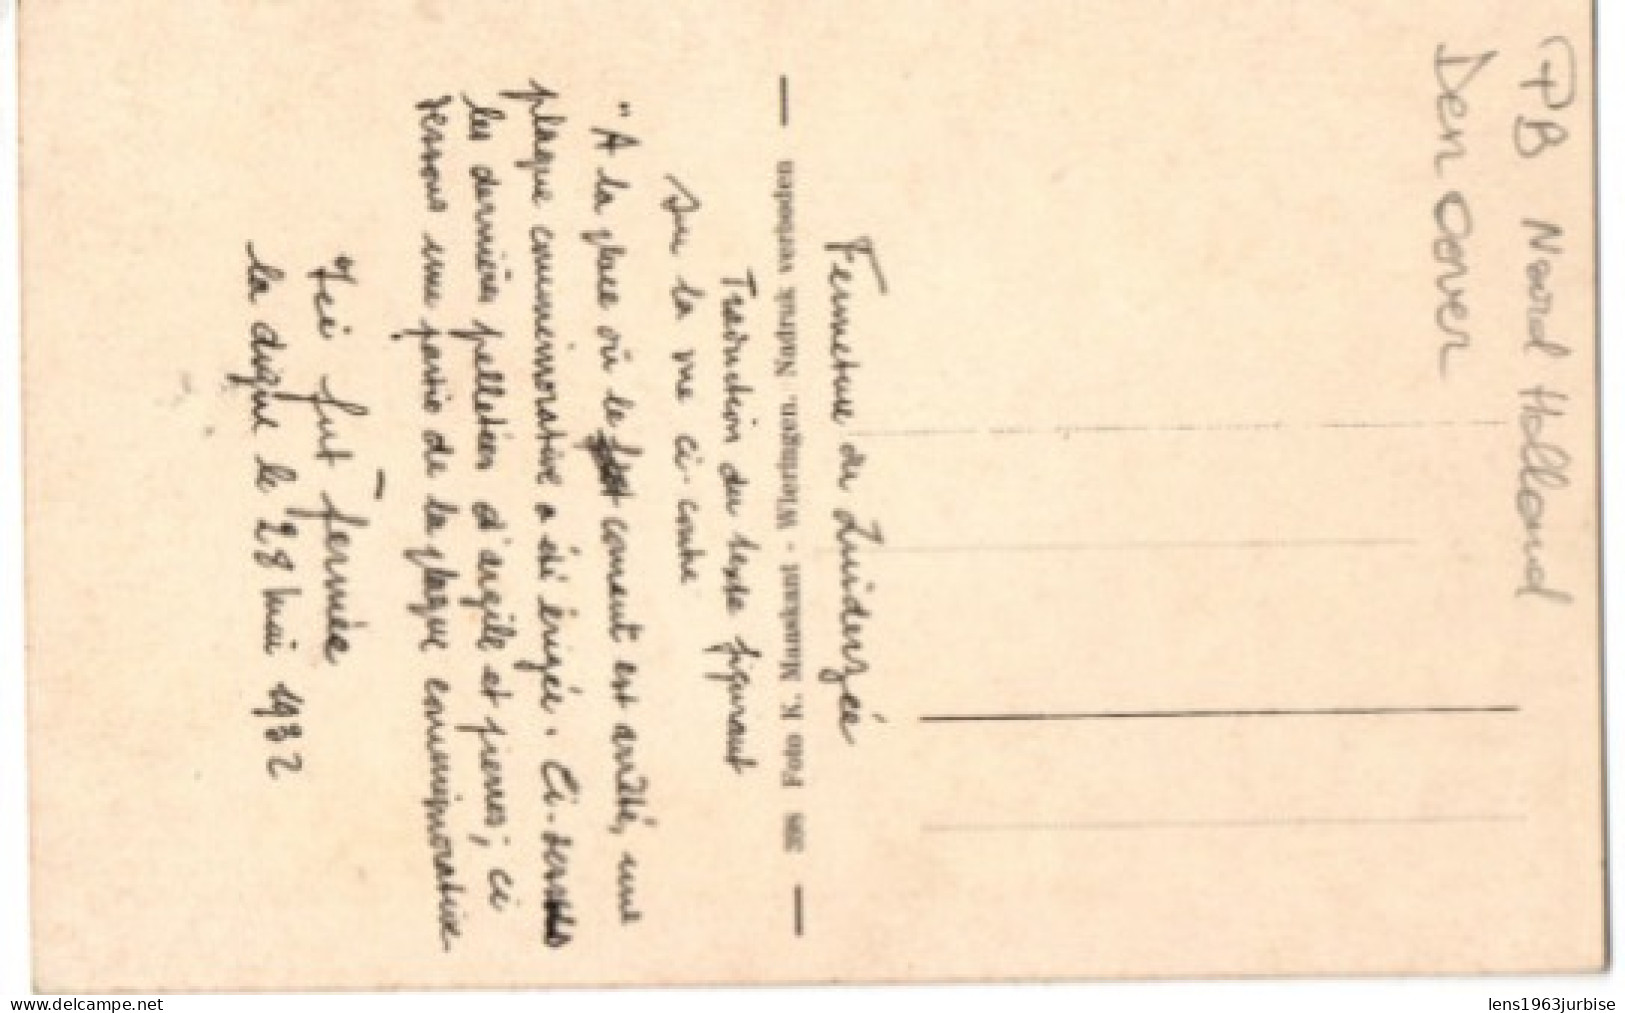 PB Noord Holland
Den Oever
Fermeture du Zuiderzée
398 Foto K. Muuskant - Wieringen. Nadruk verboden
Traduction du texte figurant
sur la vue ci-contre
"A la place où le courant est arrêté, une
plaque commémorative a été érigée. Ci-dessus
les dernières pelletées d'argile et pierres; ci
dessous une partie de la plaque commémorative
Ici fut fermée
la digue le 28 mai 1932
lens1963jurbise
www.delcampe.net